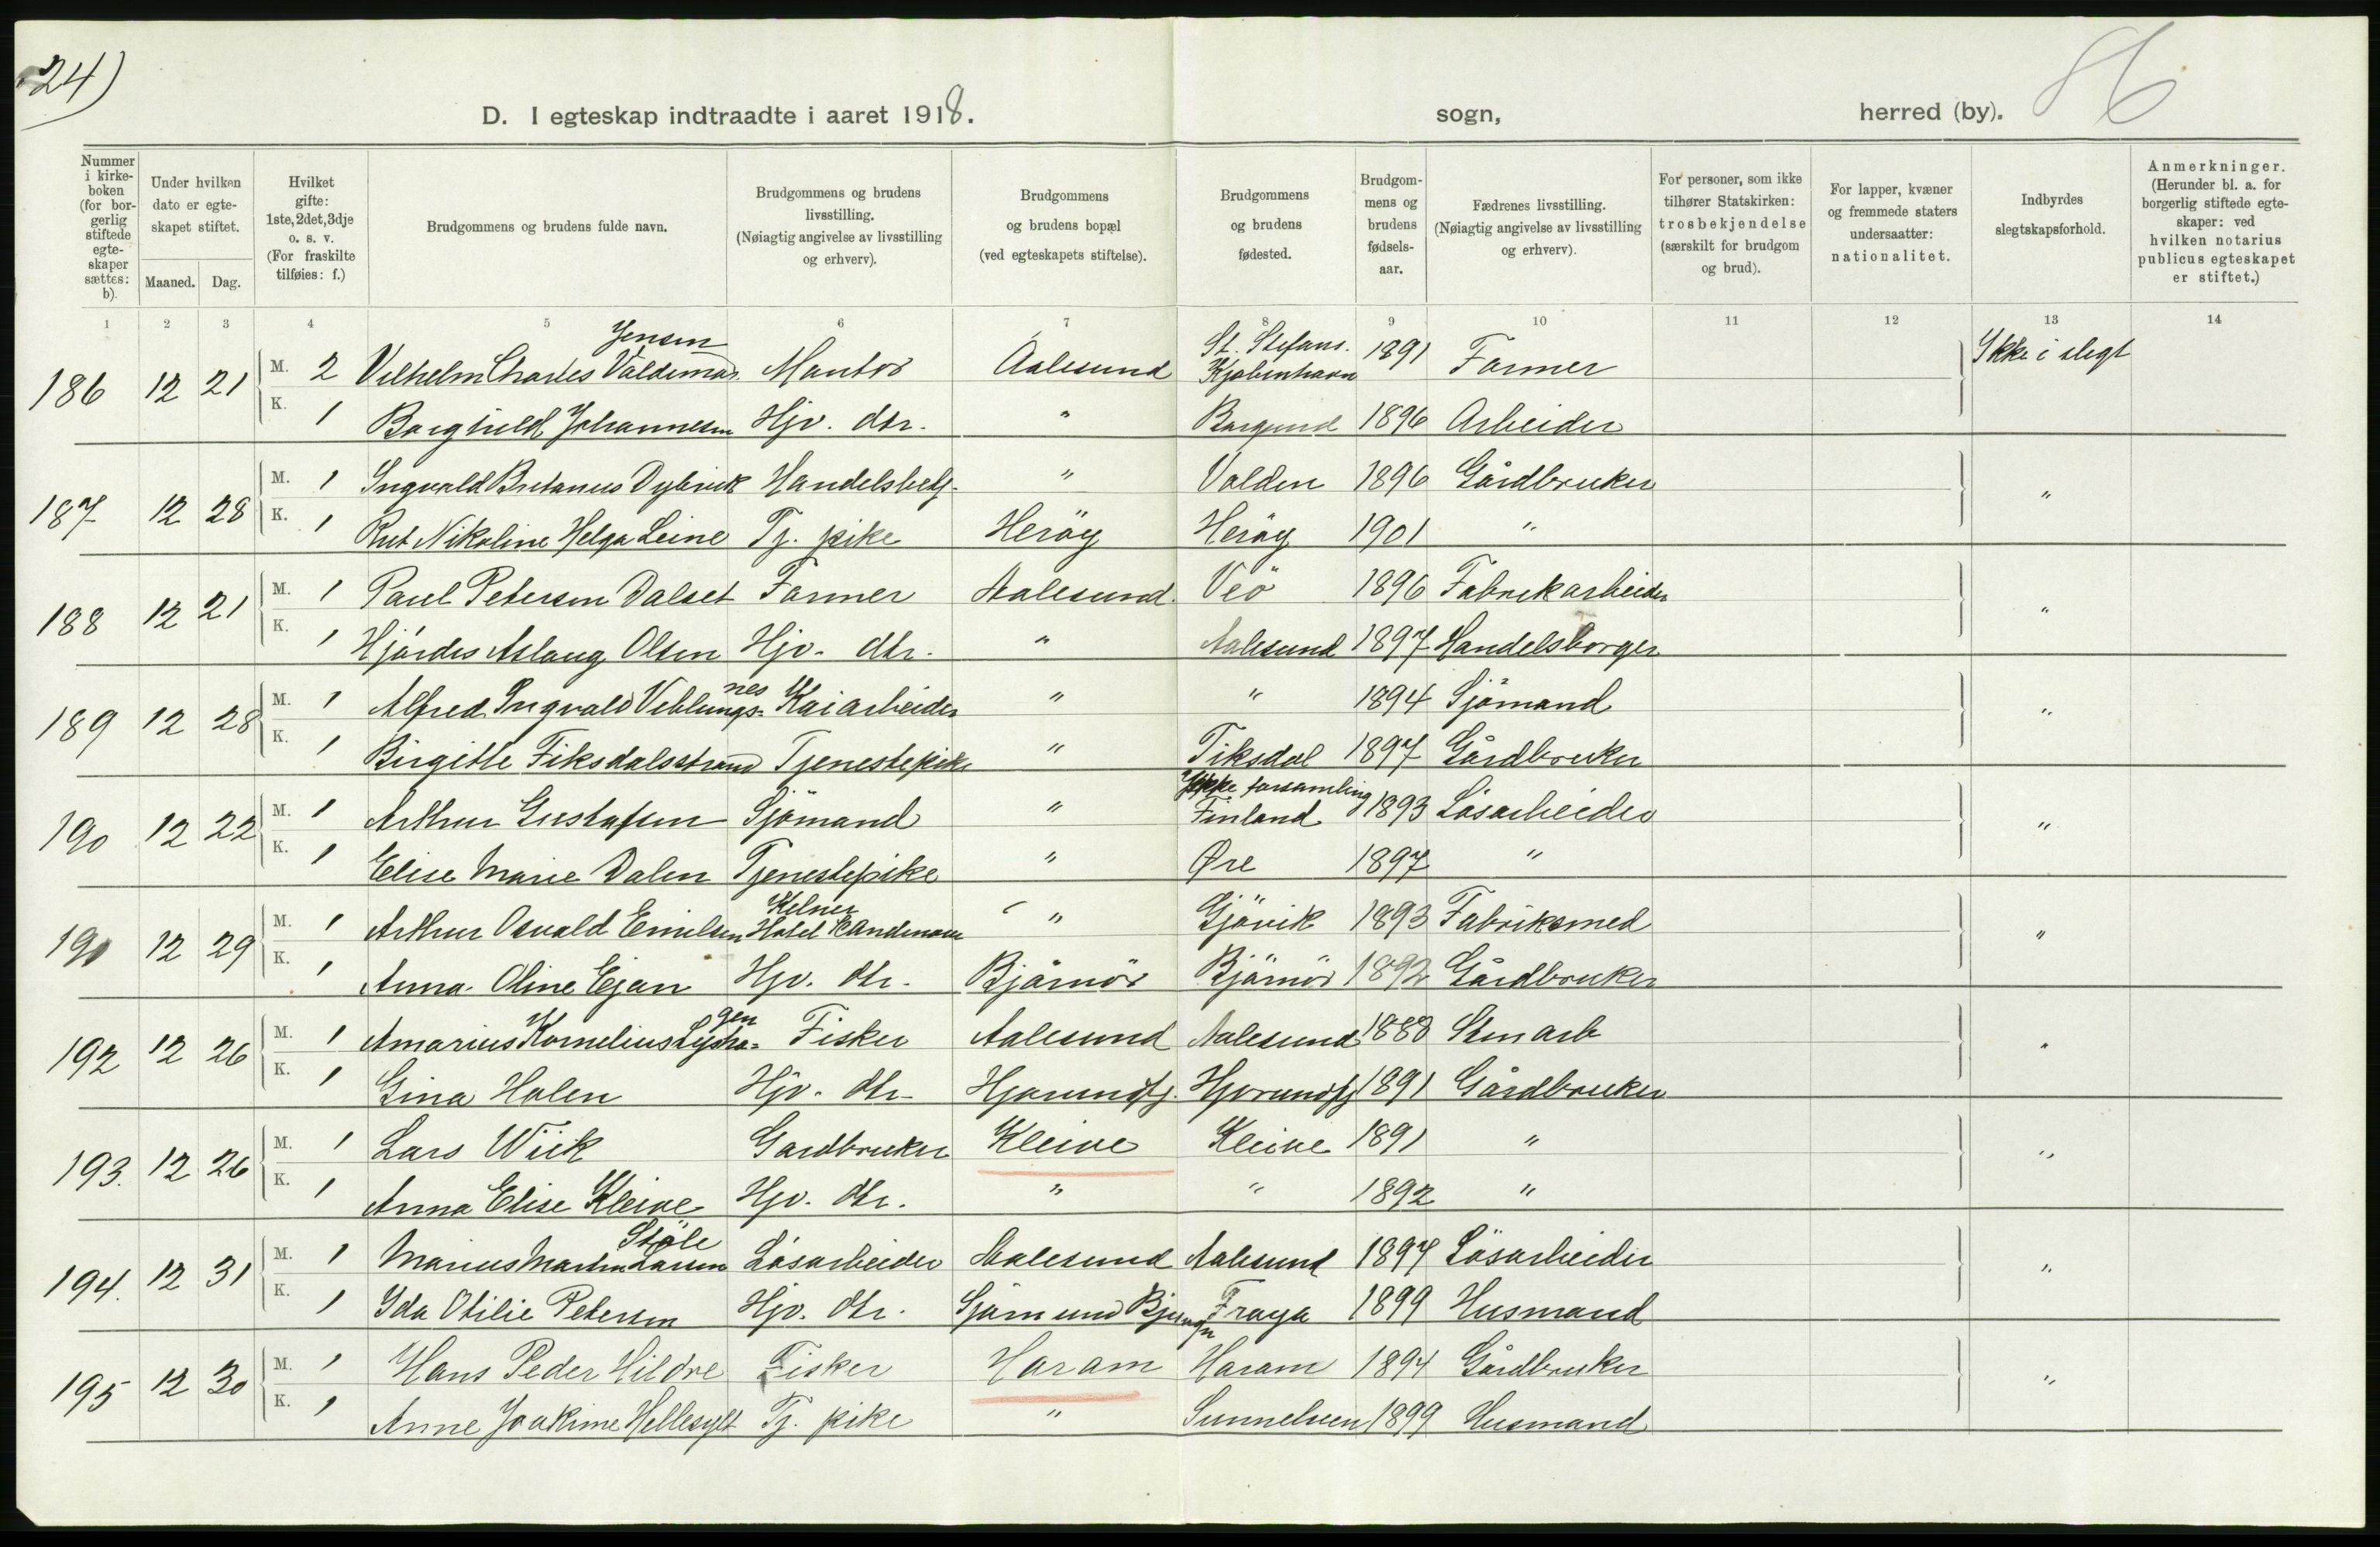 24)
D. I egteskap indtraadte i aaret 1918. sogn, herred (by).
Nummer i kirkeboken (for borgerlig stiftede egteskaper sættes: b).
Under hvilken dato er egteskapet stiftet.
Maaned. Dag.
Hvilket gifte: 1ste, 2det, 3dje o. s. v. (For fraskilte tilføies: f.)
Brudgommens og brudens fulde navn.
Brudgommens og brudens livsstilling. (Nøiagtig angivelse av livsstilling og erhverv).
Brudgommens og brudens bopæl (ved egteskapets stiftelse).
Brudgommens og brudens fødested.
Brudgommens og brudens fødselsaar.
Fædrenes livsstilling. (Nøiagtig angivelse av livsstilling og erhverv).
For personer, som ikke tilhører Statskirken: trosbekjendelse (særskilt for brudgom og brud).
For lapper, kvæner og fremmede staters undersaatter: nationalitet.
Indbyrdes slegtskapsforhold.
Anmerkninger. (Herunder bl. a. for borgerlig stiftede egteskaper: ved hvilken notarius publicus egteskapet er stiftet.)
1 2 3 4 5 6 7 8 9 10 11 12 13 14
186 12 21 M. 2 Vilhelm Charles Valdemar Jensen Montør Aalesund St. Stefans. Kjøbenhavn 1891 Farmer Ikke i slegt
K. 1 Borghild Johannesen Hjv. dtr. " Borgund 1896 Arbeider
187 12 28 M. 1 Ingvald Bretanus Dybvik Handelsbetj. " Volden 1896 Gårdbruker "
K. 1 Rut Nikoline Helga Leine Tj. pike Heröy Heröy 1901 "
188 12 21 M. 1 Paul Petersen Dalset Farmer Aalesund Veö 1896 Fabrikarbeider "
K. 1 Hjördis Aslaug Olsen Hjv. dtr. " Aalesund 1897 Handelsborger
189 12 28 M. 1 Alfred Ingvald Veblungsnes Kaiarbeider " " 1894 Sjömand "
K. 1 Birgitte Fiksdalsstrand Tjenestepike " Fiksdal 1897 Gårdbruker
190 12 22 M. 1 Arthur Gustafsen Sjömand " forsamling Finland 1893 Lösarbeider "
K. 1 Elise Marie Dalen Tjenestepike " Øre 1897 "
191 12 29 M. 1 Arthur Osvald Emilsen Kelner Hotel Skandinavie " Gjövik 1893 Fabriksmed "
K. 1 Anna Oline Ejan Hjv. dtr. Bjørnör Bjørnör 1892 Gårdbruker
192 12 26 M. 1 Amarius Kornelius Lyshagen Fisker Aalesund Aalesund 1888 Stenarb "
K. 1 Gina Holen Hjv. dtr. Hjørundfj. Hjørundfj 1891 Gårdbruker
193. 12 26 M. 1 Lars Wiik Gardbruker Kleive Kleive 1891 " "
K. 1 Anna Elise Kleive Hjv. dtr. " " 1892 "
194. 12 31 M. 1 Marius Martin Larsen Støle Lösarbeider Aalesund Aalesund 1897 Lösarbeider "
K. 1 Ida Otilie Petersen Hjv. dtr. Fraya 1899 Husmand
195 12 30 M. 1 Hans Peder Hildre Fisker Haram Haram 1894 Gårdbruker "
K. 1 Anne Joakime Hellesylt Tj. pike " Sunnelven 1899 Husmand